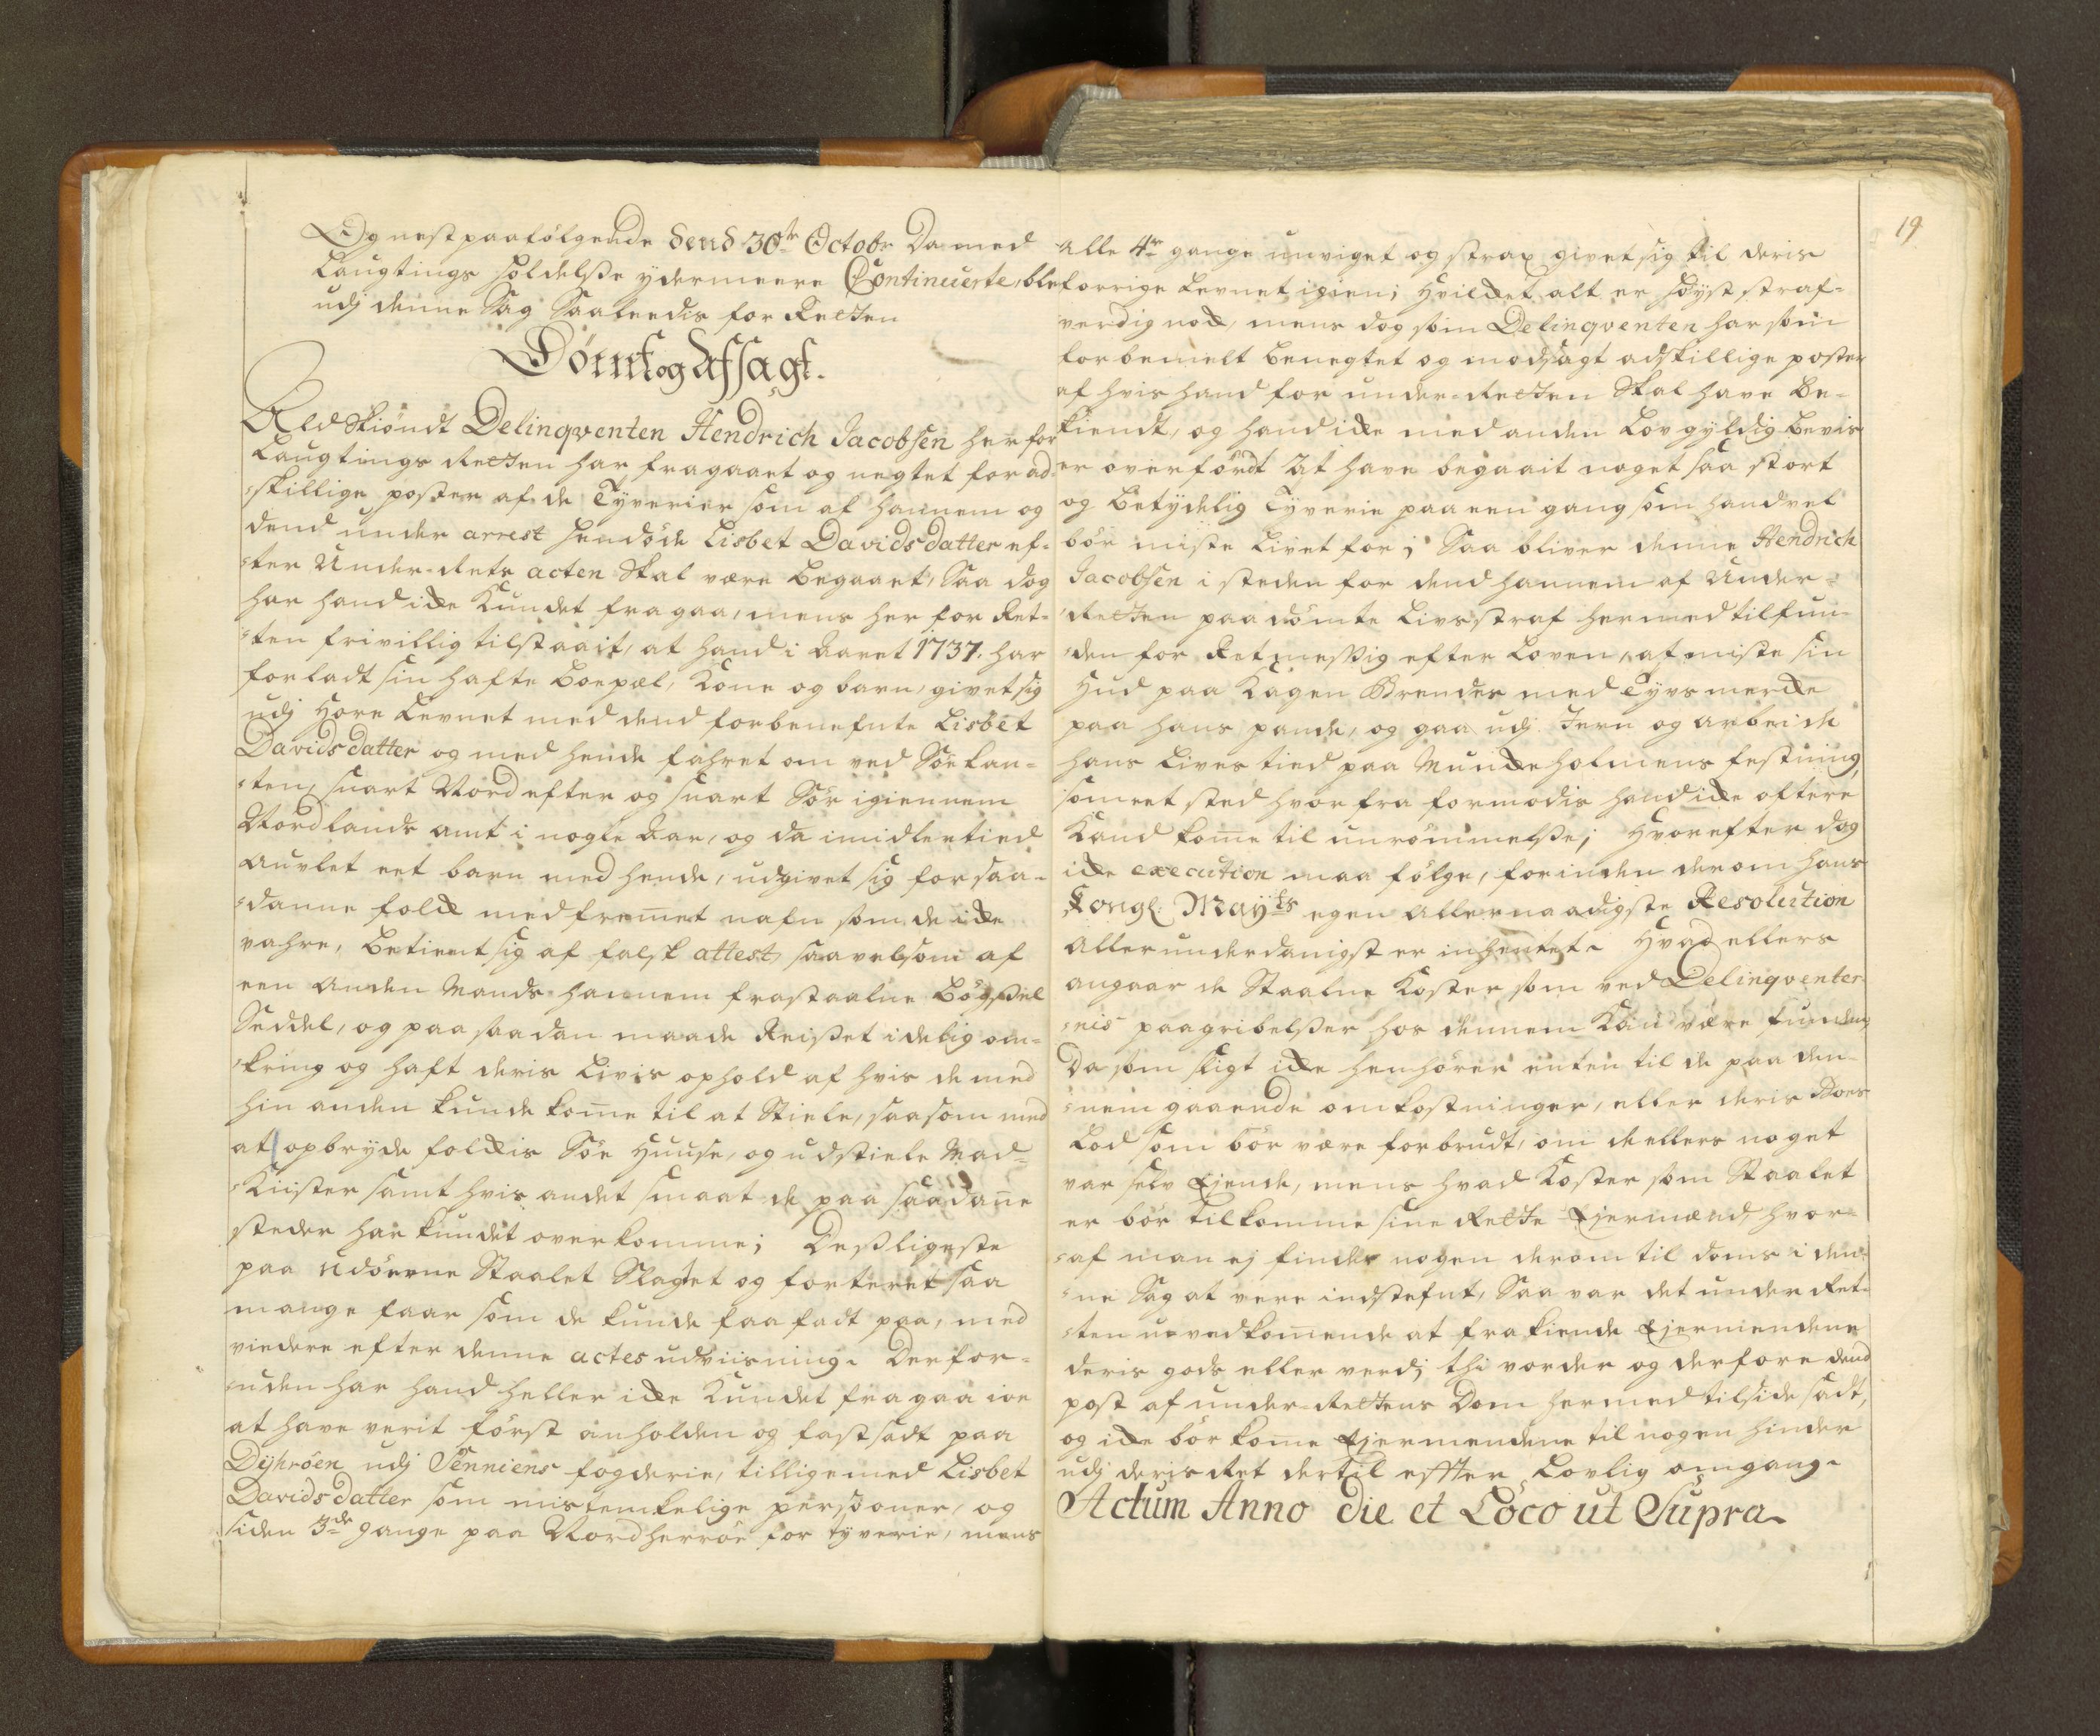 Og nest paafølgende dend 30te Octobr Da med
Laugtings holdelsse ydermeere Continuerte, blef
udj denne Sag Saaleedis for Retten
Dømt og Afsagt.
Ald Skiøndt Delinqventen Hendrich Jacobsen her for
Laugtings Retten har fragaaet og negtet for ad-
skillige poster af de Tyverier som af hannem og
dend under arrest hendøde Lisbet Davidsdatter ef-
ter Under-Rets acten Skal være begaaet, Saa dog
har hand icke Kundet fragaa, mens her for Ret-
ten frivillig tilstaait, at hand i Aaret 1737. har
forladt sin hafte Boepæl, Kone og barn, givet sig
udj Hore Levnet med dend forbenefnte Lisbet
Davidsdatter og med hende fahret om ved Søekan-
ten, snart Nord efter og snart Sør igiennem
Nordlands amt i nogle Aar, og da imidlertied
Auvlet eet barn med hende, udgivet sig for saa-
danne folck med fremet nafn som de icke
vahre, betient sig af falsk attest, saavelsom af
een Anden Mands hannem frastaalne Bøgssel
Seddel, og paa saadan maade Reisset idelig om-
kring og haft deris Livis ophold af hvis de med
hin anden kunde kome til at Stiele, saasom med
at opbryde folckis Søe Huuse, og udstiele Mad-
Kiister samt hvis andet smaat de paa saadane
steder har kundet overkomme; Desligeste
paa Udøerne Staalet Slagtet og forteret saa
mange faar som de kunde faa fadt paa, med
viedere efter denne actes udviisning. Derfor-
uden har hand heller icke Kundet fragaa ioe
at have verit først anholden og fastsadt paa
Dyhrøen udj Senniens fogderie, tilligemed Lisbet
Davidsdatter som mistenkelige persooner, og
siden 3de gange paa Nordherrøe for tyverie, mens
19
Alle 4re gange unviget og strax givet sig til deris
forrige Levnet igien; Hvilcket alt er høyst straf-
verdig nock, mens dog som Delinqventen har som
forbemelt benegtet og modsagt adskillige poster
af hvis hand for under-Retten Skal have be-
kiendt, og hand icke med anden Lovgyldig bevis
er overført at have begaait noget saa stort
og betydelig Tyverie paa een gang som hand vel
bør miste Livet for; Saa bliver denne Hendrich
Jacobsen i steden for dend hannem af Under-
Retten paadømte Livsstraf hermed tilfun-
den for Retmessig efter Loven, at miste sin
Hud paa Kagen Brendes med Tyvs mercke
paa hans pande, og gaa udj Jern og Arbeide
hans Lives tied paa Munckholmens festning,
som eet sted hvorfra formodis hand icke oftere
Kand kome til unrømmelse; Hvorefter dog
icke execution maa følge, forinden derom hans
Kongl. Mayts egen Allernaadigste Resolution
Allerunderdanigst er inhentet. Hvad ellers
angaar de Staalne Koster som ved Delinqventer-
nis paagribelsser hos dennem Kan være funden,
Da som sligt icke henhører enten til de paa den-
nem gaaende omkostninger, eller deris Boes
Lod som bør være forbrudt, om de ellers noget
var selv Ejende, mens hvad Koster som Staalet
er bør tilkomme sine Rette Ejermænd, hvor-
af man ej finder nogen derom til doms i den-
ne Sag at vere indstefnt, Saa var det under Ret-
ten uvedkomende at frakiende Ejermendene
deris gods eller verdj thi vorder og derfore dend
post af under-Rettens Dom hermed tilside sadt,
og icke bør kome Ejermendene til nogen hinder
udj deris Ret dertil effter Lovlig omgang.
Actum Anno die et Loco ut Supra.